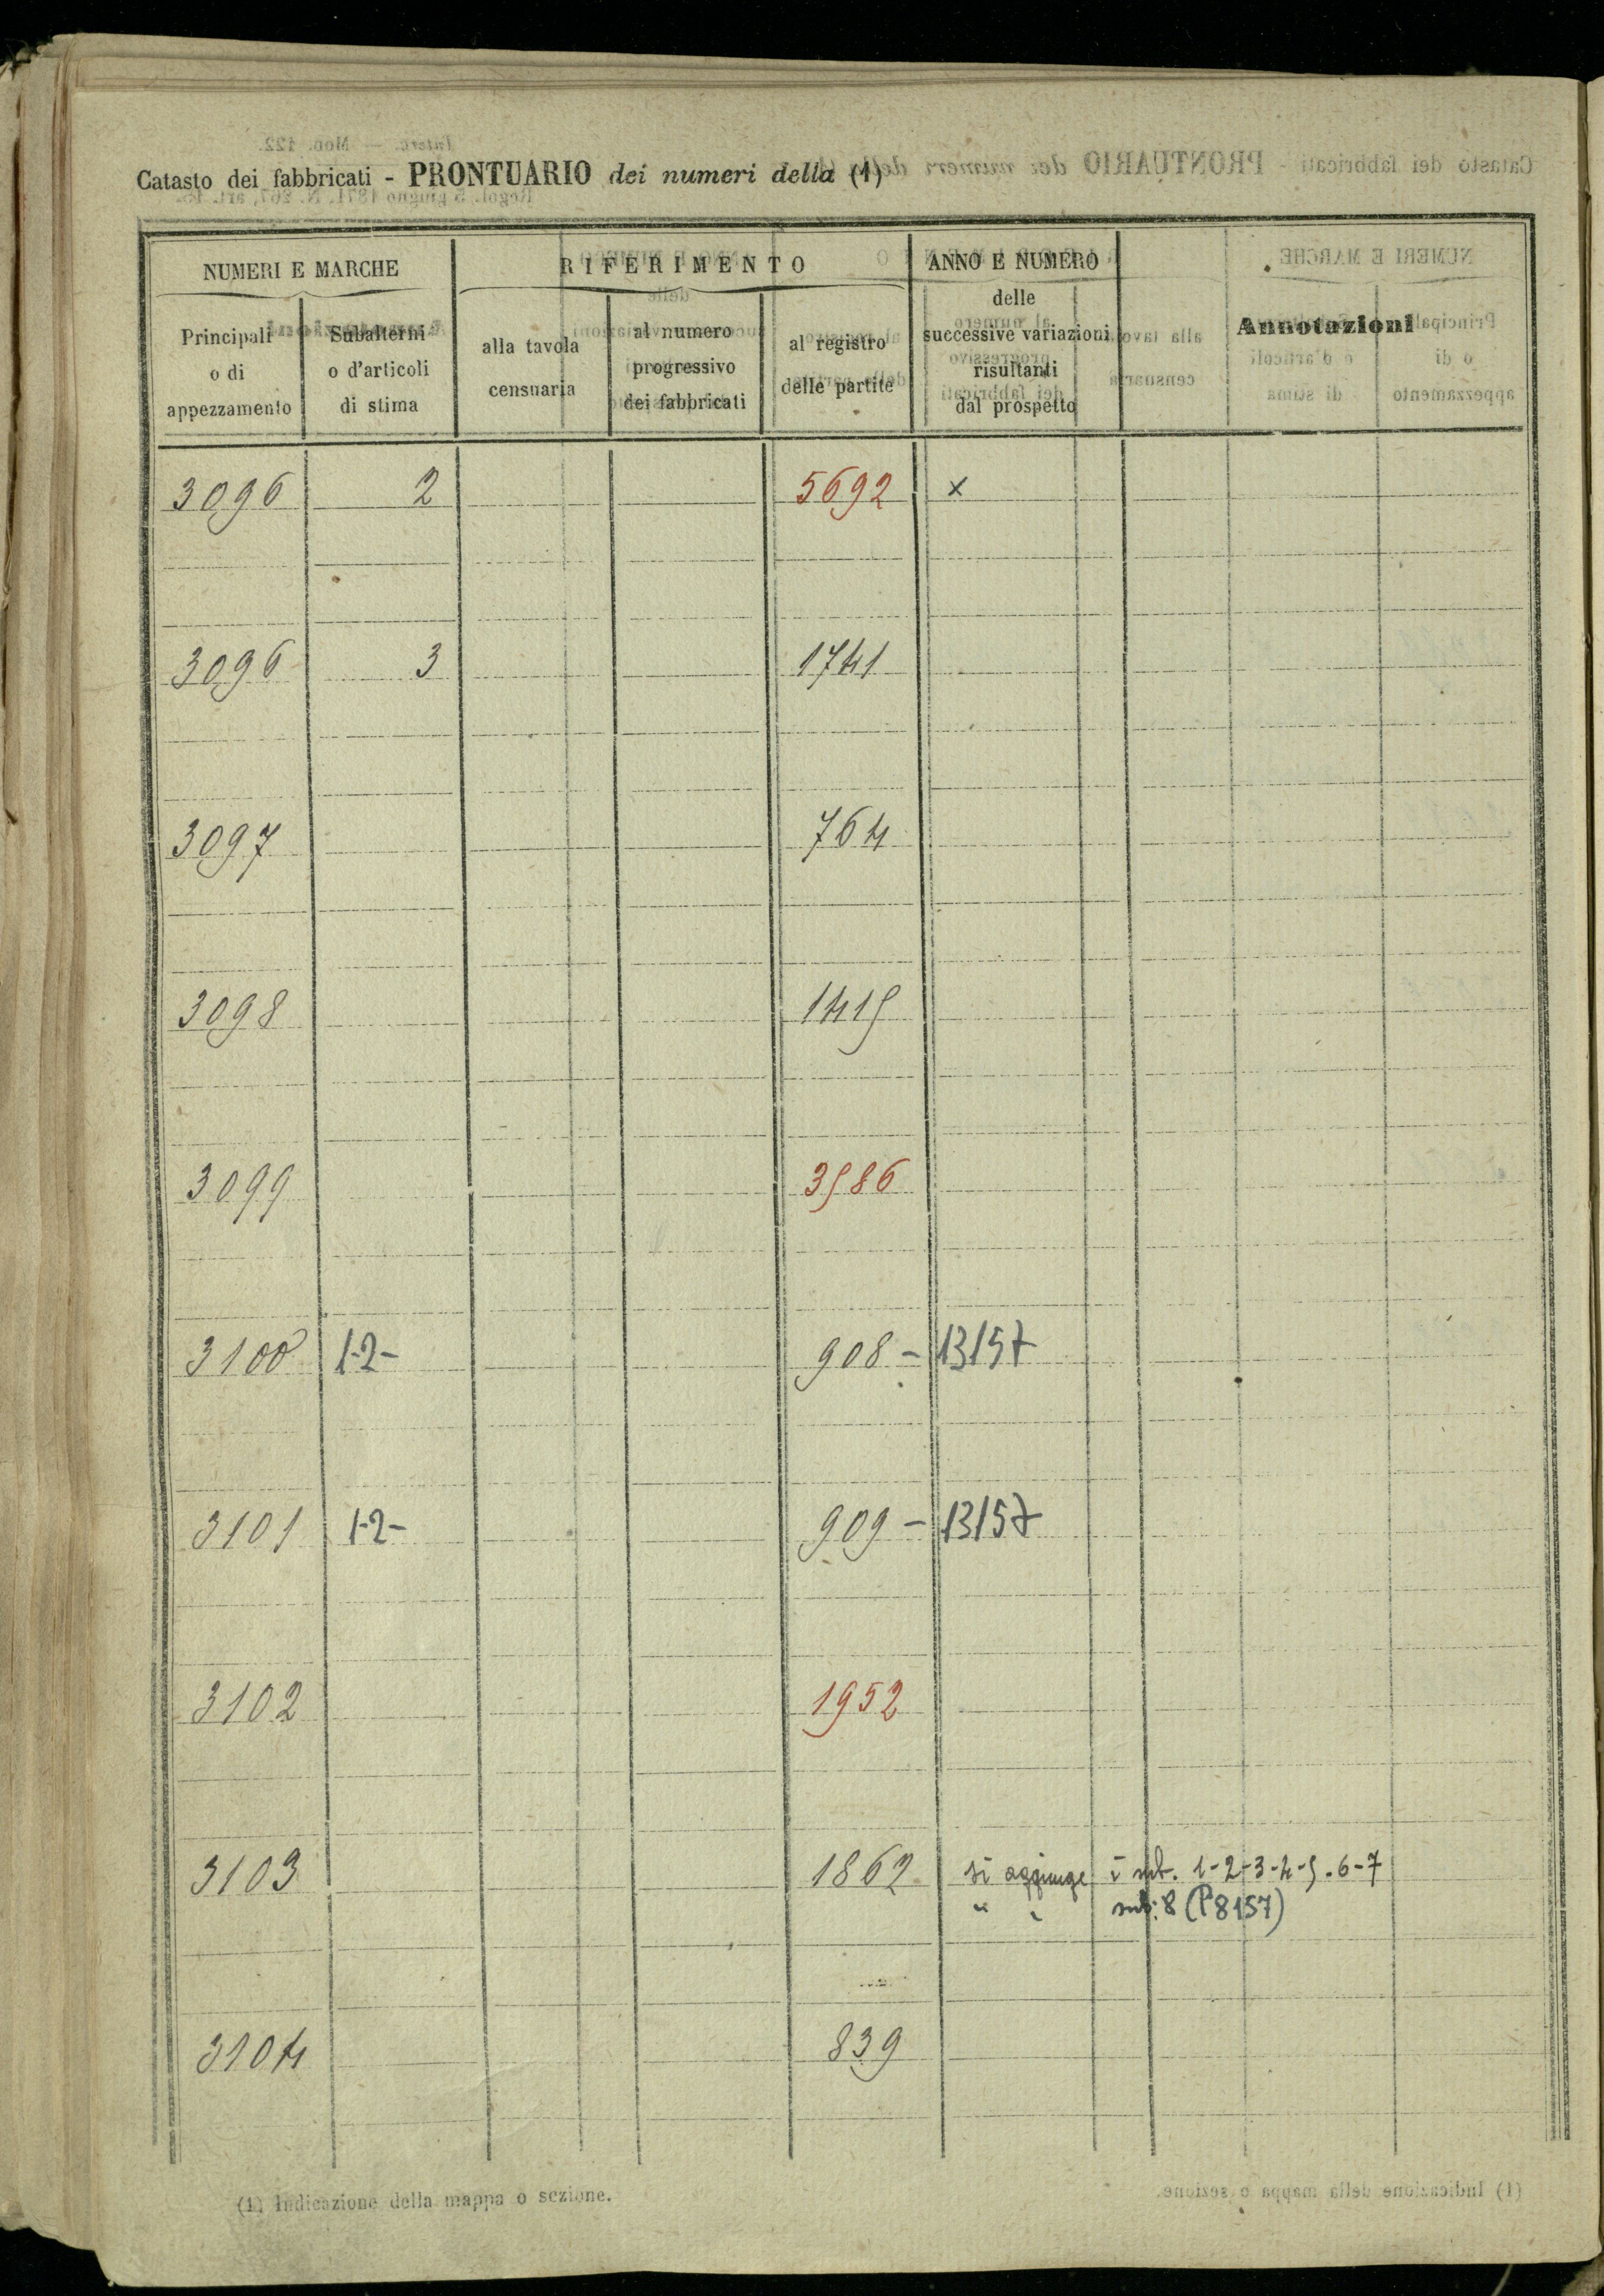 Catasto dei fabbricati - PRONTUARIO dei numeri della (1)
NUMERI E MARCHE
RIFERIMENTO
ANNO E NUMERO
delle
successive variazioni
risultanti
dal prospetto
Annotazioni
Principali
o di
appezzamento
Subalterni
o d'articoli
di stima
alla tavola
censuaria
al numero
progressivo
dei fabbricati
al registro
delle partite
3096 2 5692 x
3096 3 1741
3097 764
3098 1415
3099 3586
3100 1-2- 908 - 13157
3101 1-2- 909 - 13157
3102 1952
3103 1862 si aggiunge i sub. 1-2-3-4-5-6-7
" " sub: 8 (P8157)
3104 839
(1) Indicazione della mappa o sezione.